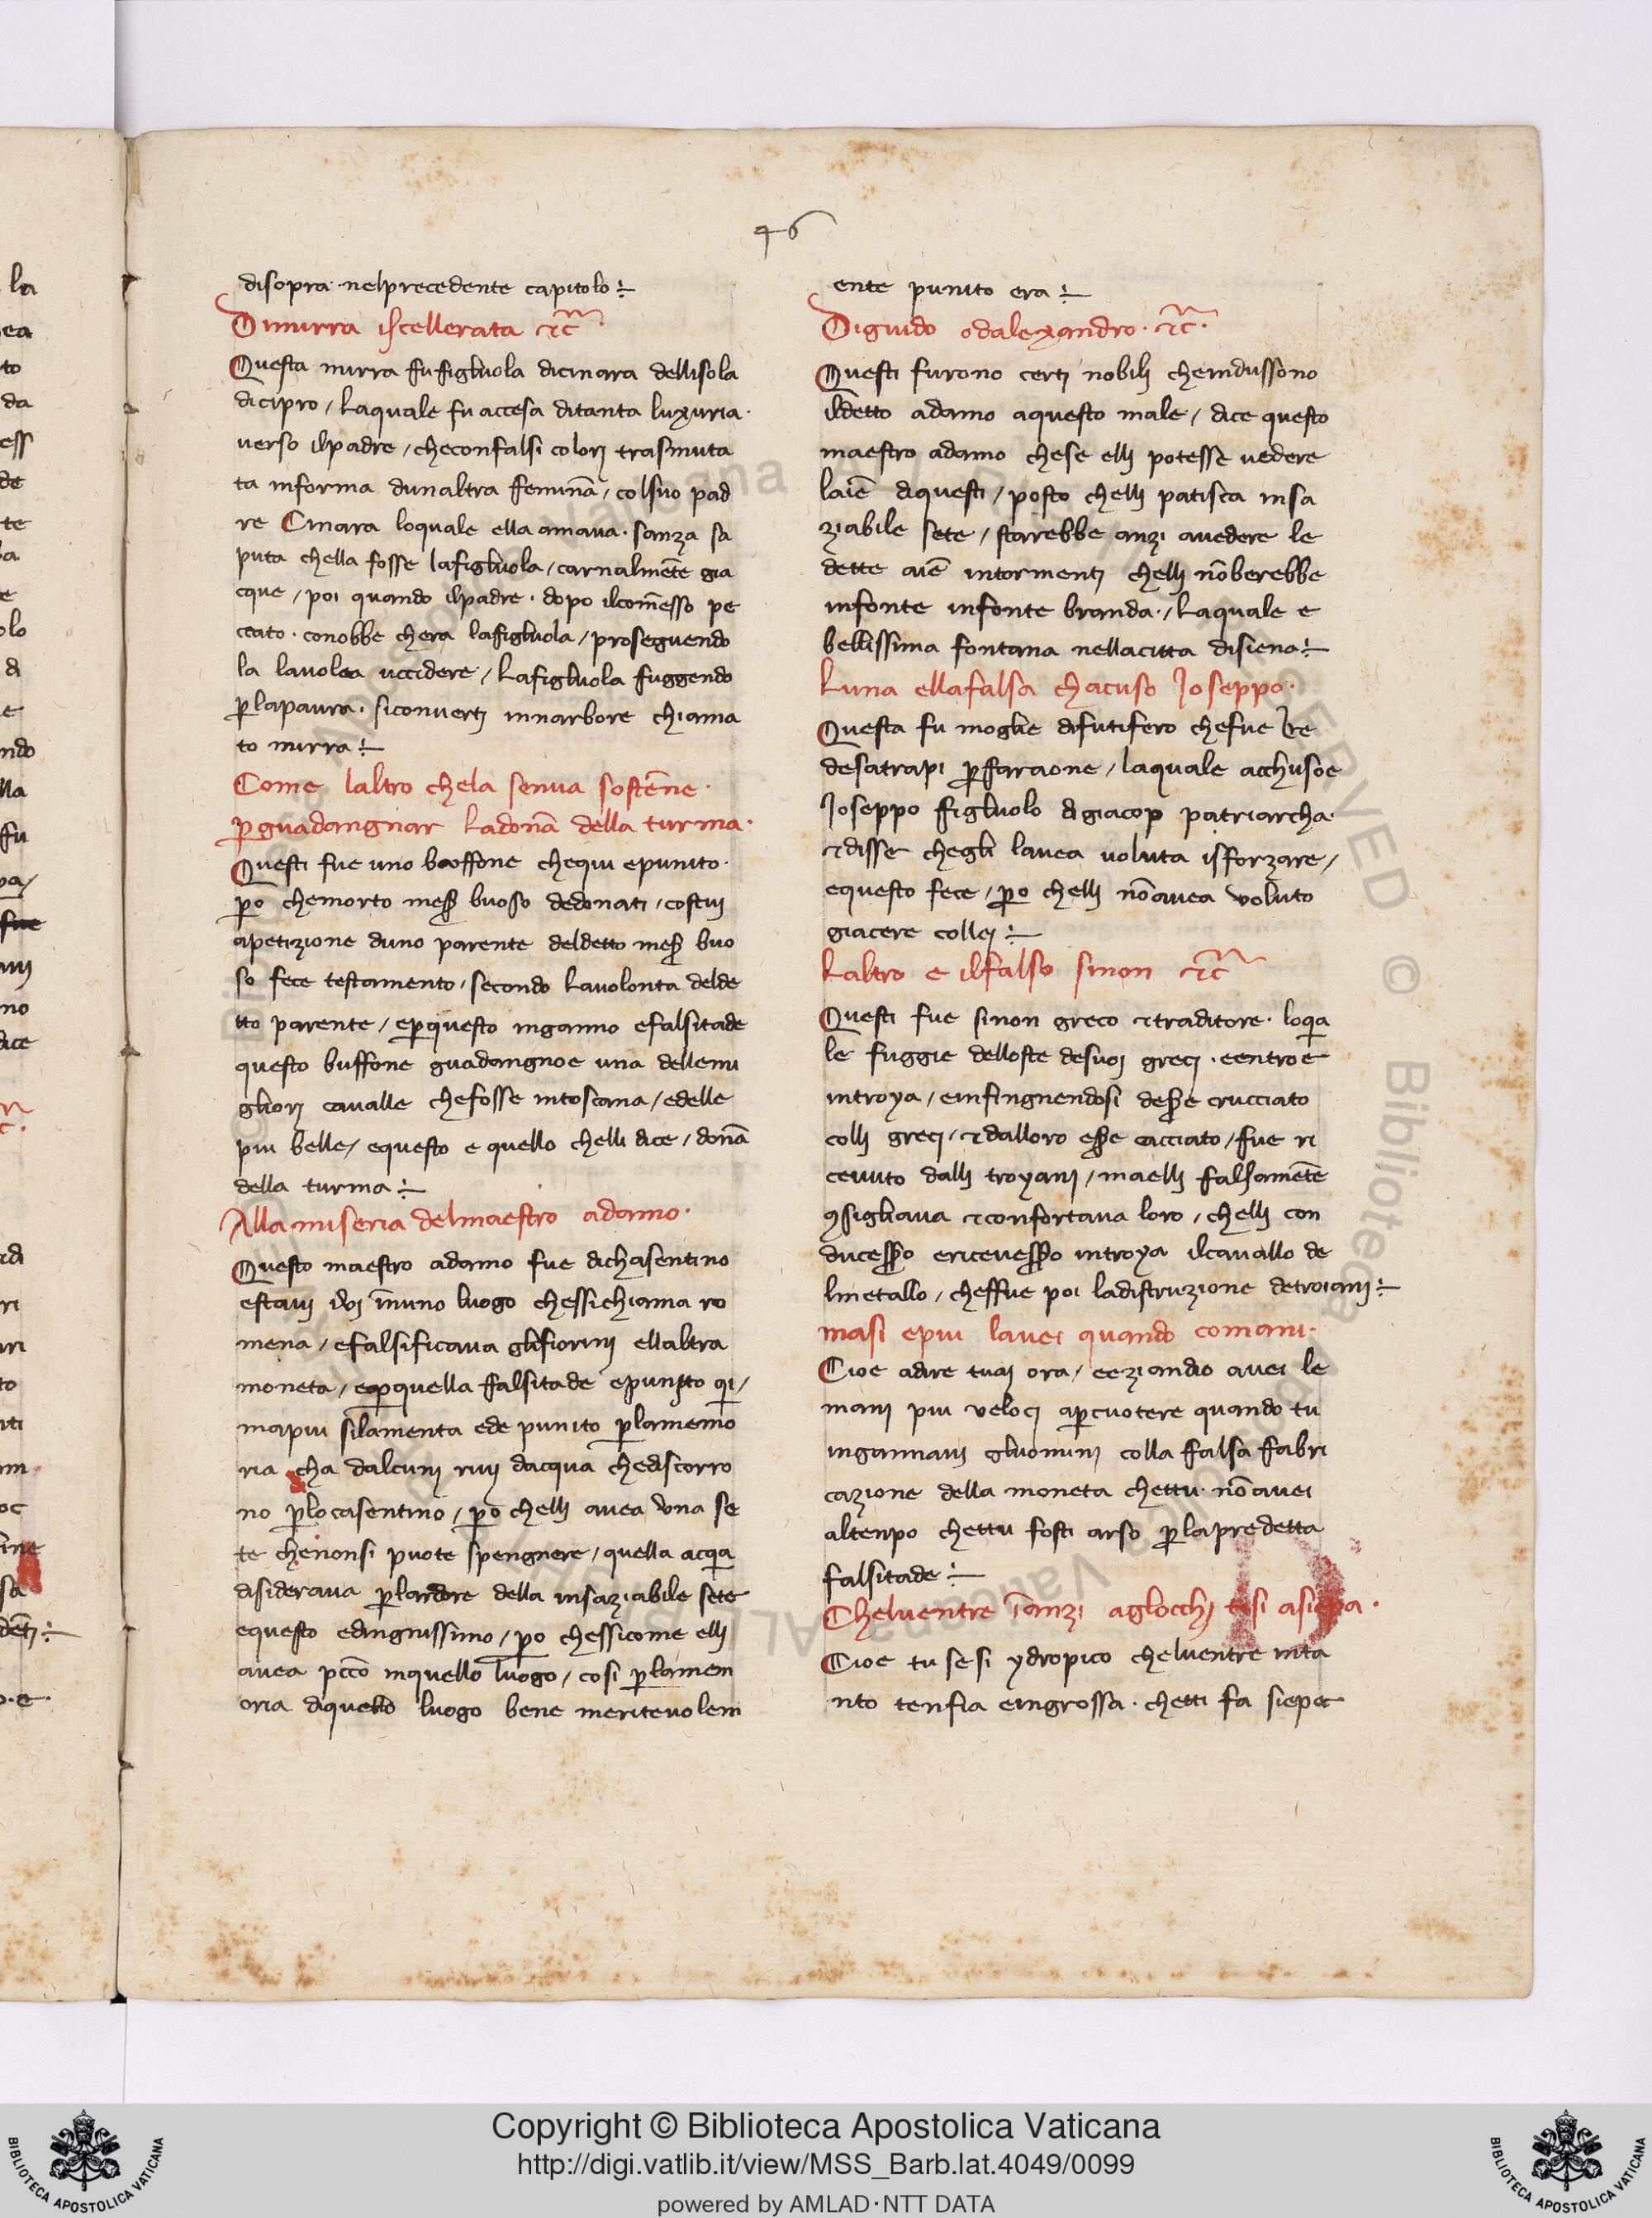 46
disopra · nelprecedente capitolo
Dimirra iscellerata etc̄ ·
Questa mirra fu figluola dicinara dellisola
dicipro / Laquale fu accesa ditanta luxuria ·
verso ilpadre / checonfalsi colorj trasmuta
ta informa dunaltra feminā / colsuo pad
re Cinara loquale ella amava · sanza sa
puta chella fosse lafigluola / carnalmēte gia
cque / poi quando ilpadre · dopo ilcom̄esso pe
ccato · conobbe chera lafigluola / proseguendo
la lavolea uccidere / Lafigluola fuggendo
ꝑlapaura · siconvertj innarbore chiama
to mirra
Come laltro chela senva sostēne ·
ꝑguadangnar Ladonā della turma ·
Questi fue uno boffone chequi epunito ·
ꝑo chemorto mess̄ buoso dedonati / costuj
apetizione duno parente deldetto mess̄ buo
so fece testamento / secondo Lavolonta delde
tto parente / eꝑquesto inganno efalsitade
questo buffone guadangnoe una dellemi
gliorj cavalle chefosse intoscana / edelle
piu belle / equesto e quello chelli dice / donā
della turma
Alla miseria delmaestro adamo ·
Questo maestro adamo fue dichasentino
estavj ivj īnuno luogo chessichiama ro
mena / efalsificava glifiorinj ellaltra
moneta / eꝑquella falsitade epunito qi /
mapiu silamenta ede punito ꝑlamemo
ria cha dalcunj rivj dacqua chediscorro
no ꝑlocasentino / ꝑo chellj avea una se
te chenonsi puote spengnere / quella acqa
disiderava ꝑlardore della insaziabile sete
equesto edingnissimo / ꝑo chessicome ellj
avea pccō inquello luogo / cosi ꝑlamem
oria diquello luogo bene meritevolem
ente punito era
Diguido odalexandro · etc̄ ·
Questi furono certj nobilj cheindussono
ildetto adamo aquesto male / dice questo
maestro adamo chese ellj potesse vedere
laīē diquesti / posto chellj patisca insa
ziabile sete / starebbe anzi avedere le
dette aīē intormentj chellj nōberebbe
infonte infonte branda · / Laquale e
bellissima fontana nellacitta disiena
Luna ellafalsa chacuso Joseppo ·
Questa fu moglie difutifero chefue tre
desatrapi ꝑffaraone / laquale acchusoe
Joseppo figluolo digiacop patriarcha ·
etdisse chegli lavea voluta isforzare /
equesto fece / ꝑo chellj nōavea voluto
giacere collej
Laltro e ilfalso sinon etc̄
Questi fue sinon greco etraditore · loqa
le fuggie delloste desuoj grecj · eentroe
introya / einfingnendosi dess̄e crucciato
collj grecj / etdalloro ess̄e cacciato / fue ri
cevuto dallj troyanj / maellj falsamēte
ꝯsigliava etconfortava loro / chellj con
ducess̄o ericevess̄o introya ilcavallo de
lmetallo / cheffue poi ladistruzione detroianj
masi epiu lavei quando comani ·
Cioe adire tuaj ora / eeziandio avei le
manj piu velocj aꝑcuotere quando tu
ingannavj gluominj colla falsa fabri
cazione della moneta chettu · nōavei
altenpo chettu fosti arso ꝑlapredetta
falsitade
Chelventre īanzi aglocchj tisi asiepa ·
Cioe tu sesi ydropico chelventre inta
nto tenfia eingrossa · chetti fa siepe
Copyright © Biblioteca Apostolica Vaticana
http://digi.vatlib.it/view/MSS_Barb.lat.4049/0099
powered by AMLAD·NTT DATA
BIBLIOTECA APOSTOLICA VATICANA
BIBLIOTECA APOSTOLICA VATICANA